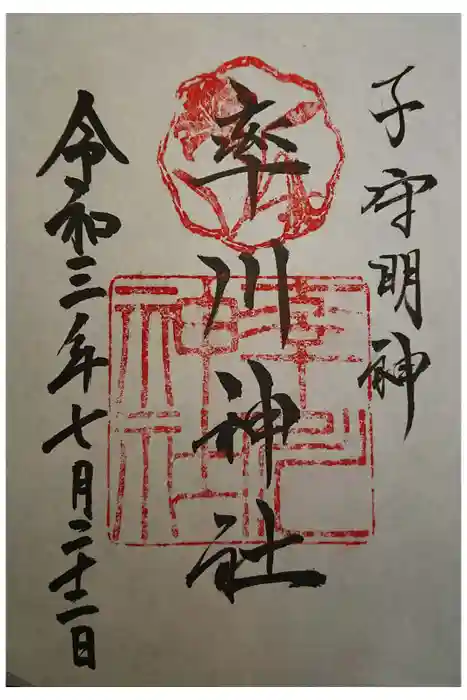 子守明神
率川神社
令和三年七月二十二日